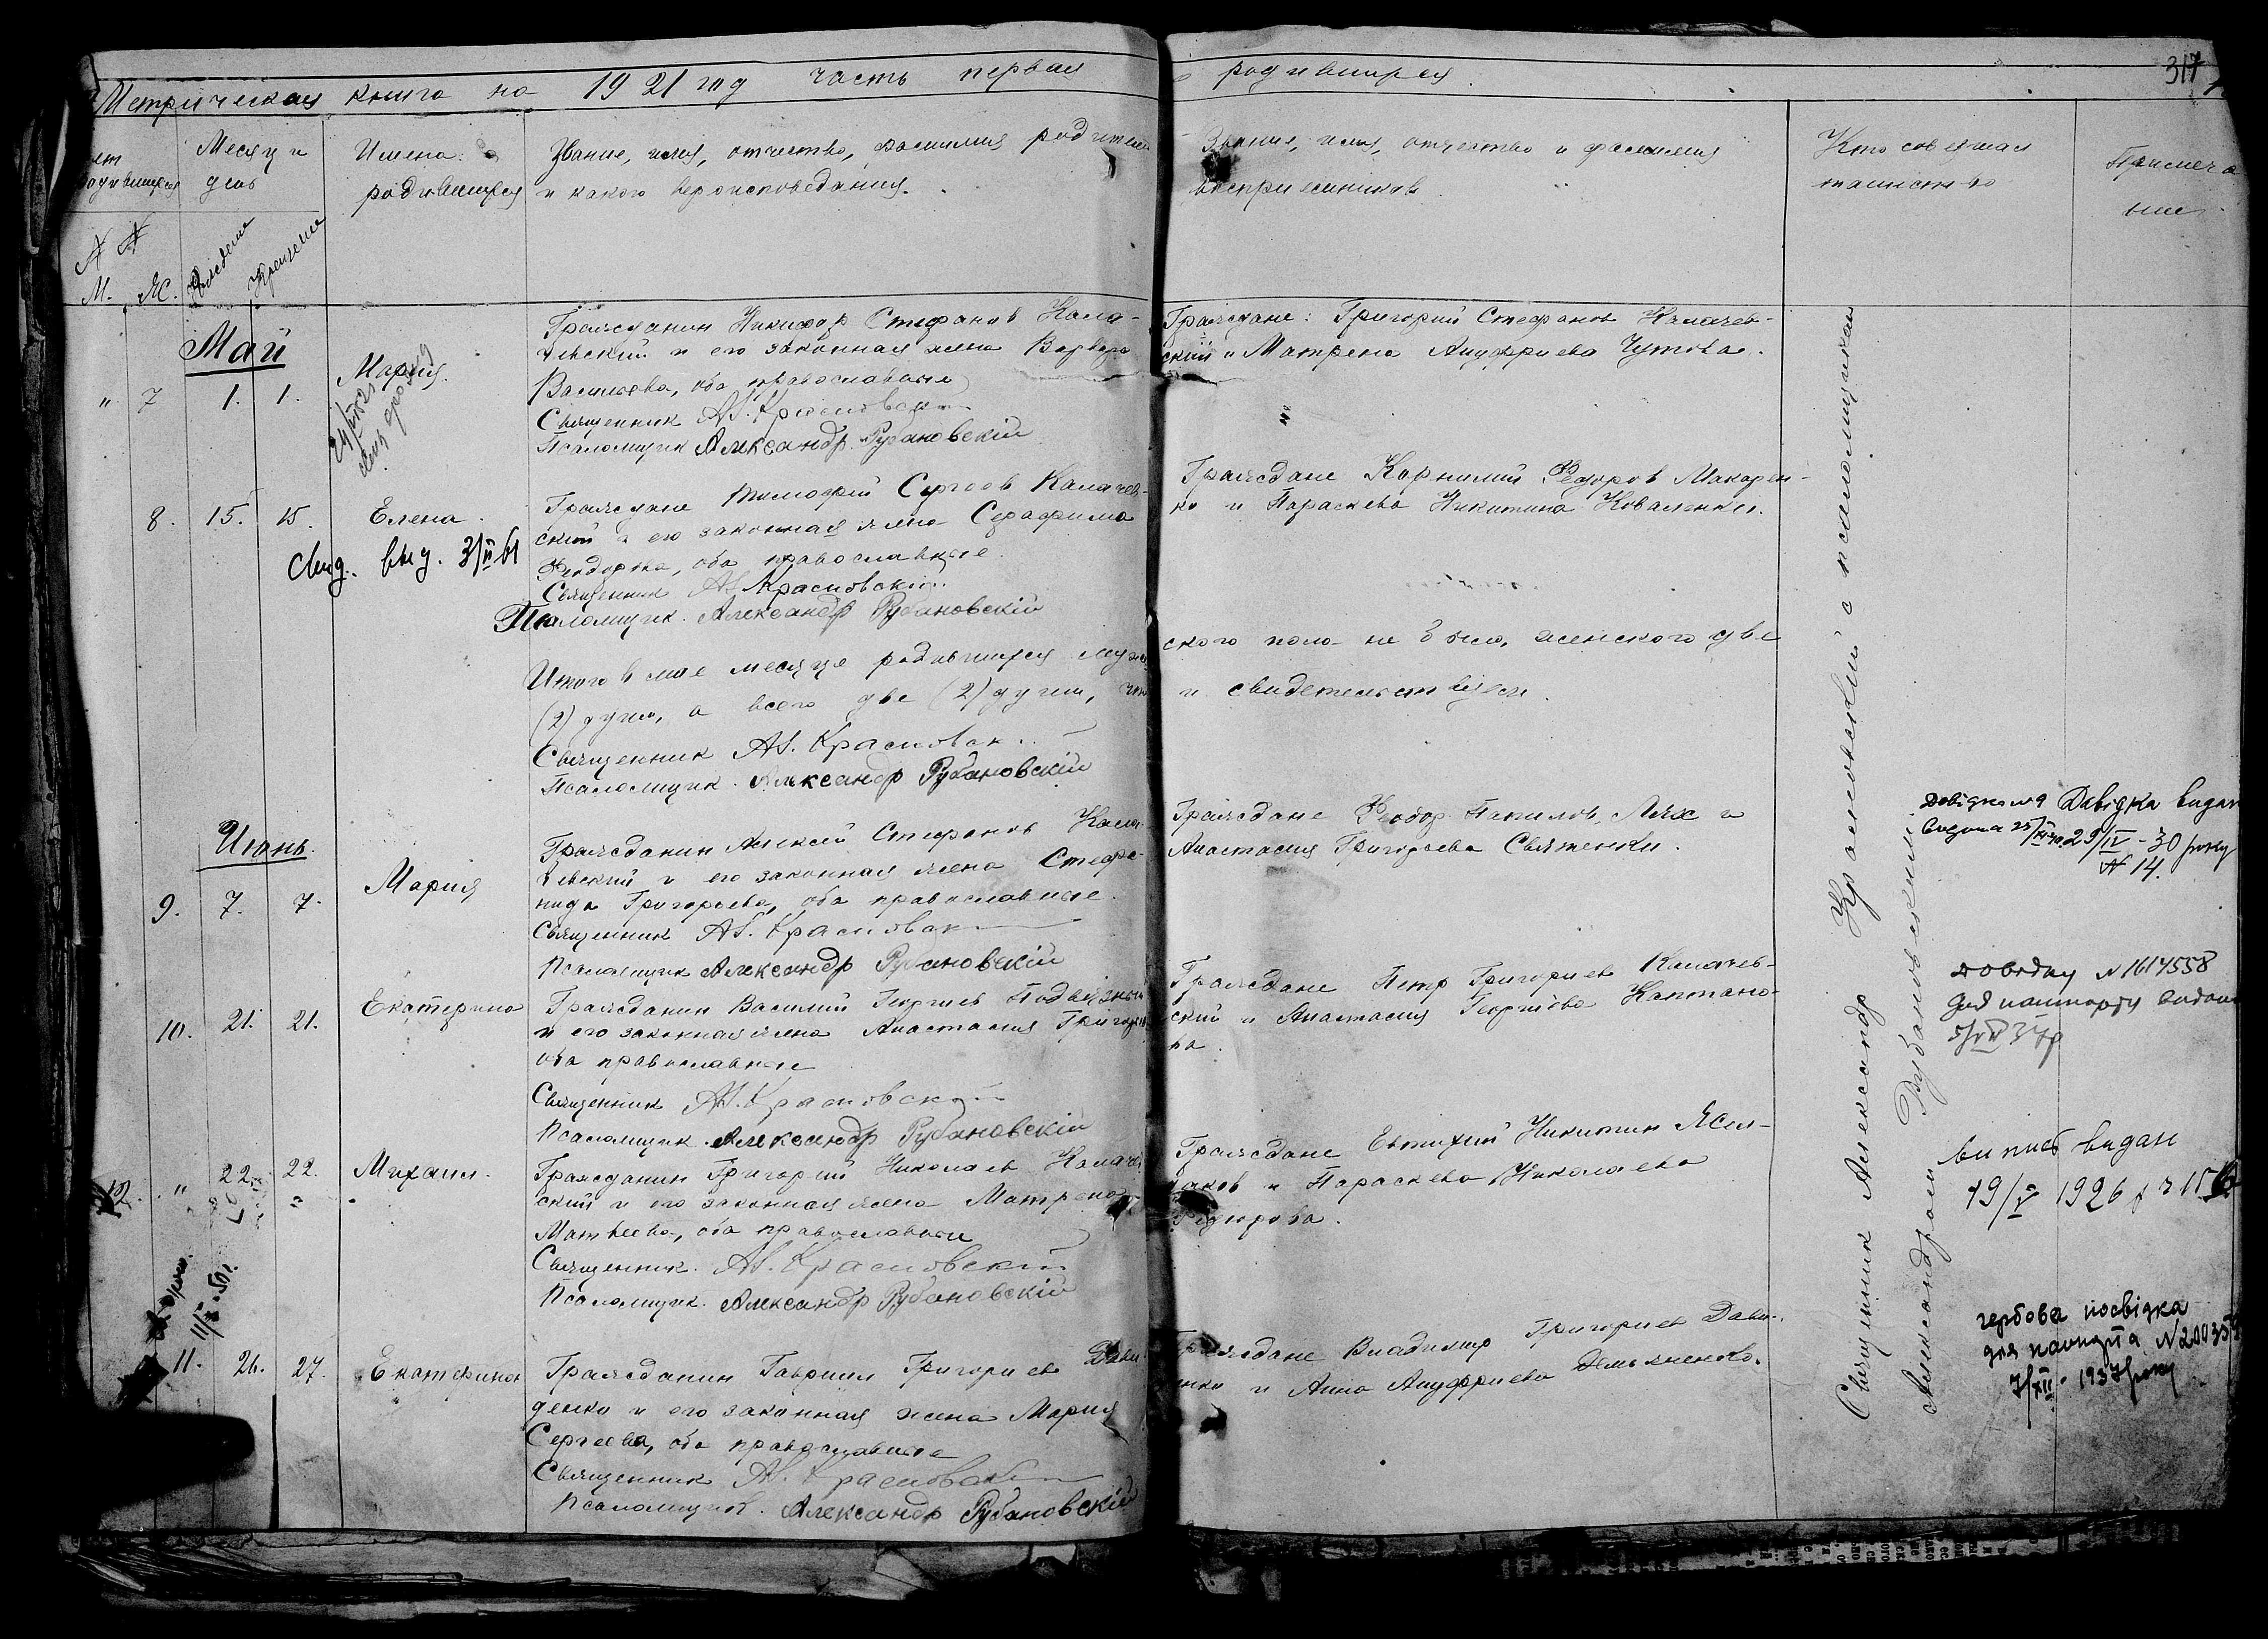 Метрическая книга на 1921 год часть первая о родившихся.
317
Месяц и день
Имена родившихся
Звание, имя, отчество, фамилия родителей
и какого вероисповедания.
Звание, имя, отчество и фамилия
восприемников
Кто совершал
таинство
Примеча
ние
№ №
М. Ж.
Рождения
Крещения
Май
" 7 1. 1. Мария.
Гражданин Никифор Стефанов Кала-
чевский и его законная жена Варвара
Васильева, оба православные
Священник Ал. Красновский
Псаломщик Александр Рубановскій
Граждане: Григорий Стефанов Калачев-
ский и Матрена Ануфриева Чутова.
8. 15. 15. Елена
Свид. выд. 3/II 61
Граждане Тимофей Сергеев Калачев-
ский и его законная жена Серафима
Феодорова, оба православные.
Священник Ал. Красновский
Псаломщик. Александр Рубановскій
Граждане Корнилий Федоров Макарен-
ко и Параскева Никитина Коваленко.
Итого в мае месяце родившихся муж
ского пола не было, женского две
(2) души, а всего две (2) души, что
и свидетельствуем.
Священник Ал. Красновск
Псаломщик. Александр Рубановскій
Июнь.
9. 7. 7. Мария
Гражданин Алексей Стефанов Кала-
чевский и его законная жена Стефа-
нида Григорьева, оба православные.
Священник Ал. Красновск
Псаломщик Александр Рубановскій
Граждане Феодор Лях и
Анастасия Григорьева
Довідка видан
29/IV - 30 року
№ 14.
10. 21. 21. Екатерина
Гражданин Василий Георгиев
и его законная жена Анастасия Григорьев
оба православные
Священник Ал. Красновский
Псаломщик. Александр Рубановскій
Граждане Петр Григориев Калачев-
ский и Анастасия Георгиева Каптано-
ва.
№ 1614558
" 22. 22. Михаил.
Гражданин Григорий Николаев Калачев
ский и его законная жена Матрена
Матвеева, оба православные
Священник. Ал. Красновский
Псаломщик. Александр Рубановскій
Граждане Евтихий Никитин
и Параскева Николаева
Федорова.
випис видан
19/V 1926 р
11. 26. 27. Екатерина
Гражданин Гавриил Григориев Дави
денко и его законная жена Мария
Сергеева, оба православные
Священник Ал. Красновский
Псаломщик. Александр Рубановскій
Граждане Владимир Григориев Дави-
енко и Анна Ануфриева Демьяненково.
гербова посвідка
для паспорта
7/XII - 1937 року
Священник Александр Красновский с псаломщиком
Александром Рубановским.